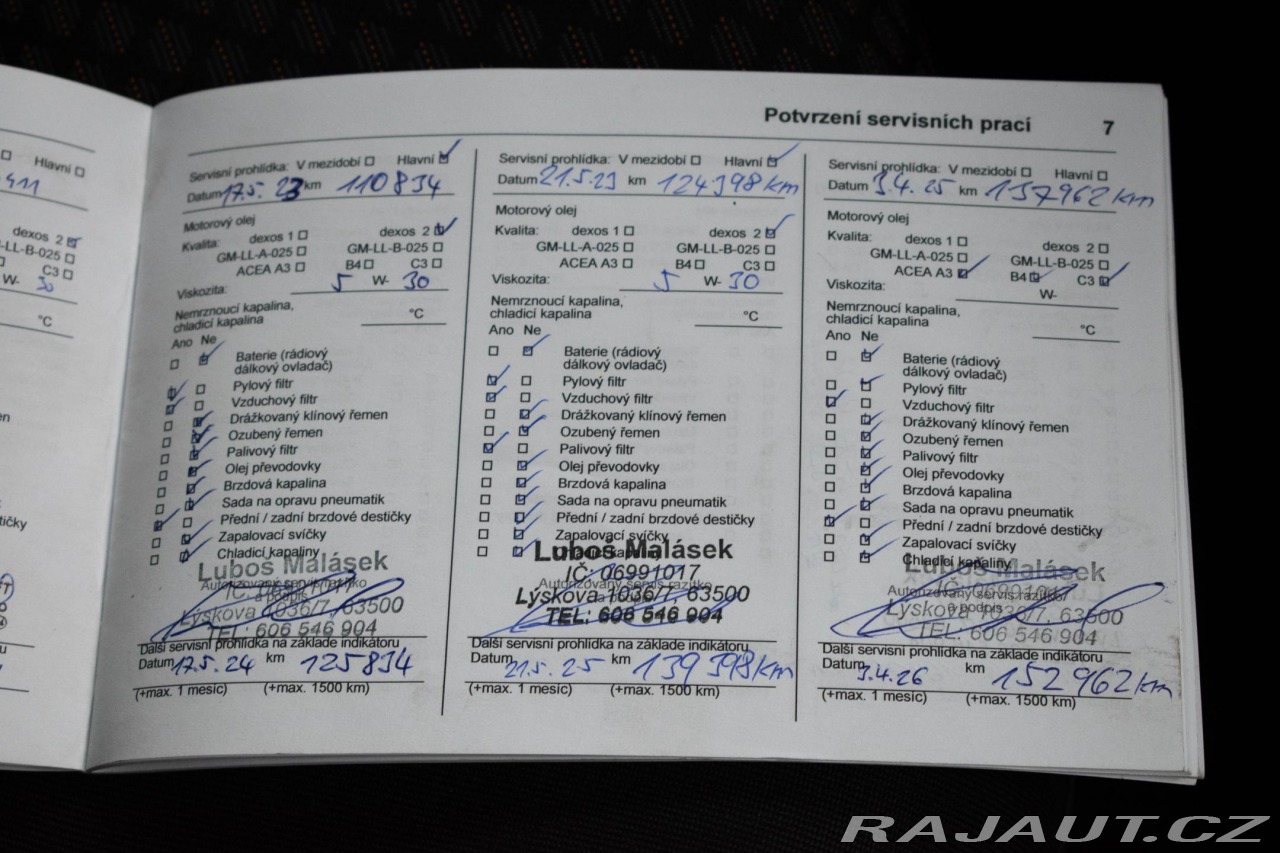 Hlavní ☐
411
dexos 2 ☑
-LL-B-025 ☐
C3 ☐
W- 30
°C
Potvrzení servisních prací 7
Servisní prohlídka: V mezidobí ☐ Hlavní ☑
Datum 17.5. 23 km 110834
Motorový olej
Kvalita: dexos 1 ☐ dexos 2 ☑
GM-LL-A-025 ☐ GM-LL-B-025 ☐
ACEA A3 ☐ B4 ☐ C3 ☐
Viskozita: 5 W- 30
Nemrznoucí kapalina,
chladicí kapalina °C
Ano Ne
☐ ☑ Baterie (rádiový
dálkový ovladač)
☑ ☐ Pylový filtr
☑ ☐ Vzduchový filtr
☐ ☑ Drážkovaný klínový řemen
☐ ☑ Ozubený řemen
☐ ☑ Palivový filtr
☐ ☑ Olej převodovky
☐ ☑ Brzdová kapalina
☐ ☑ Sada na opravu pneumatik
☑ ☐ Přední / zadní brzdové destičky
☐ ☑ Zapalovací svíčky
☐ ☑ Chladicí kapaliny
Luboš Malásek
Autorizovaný servis razítko
a podpis
IČ: 06991017
Lýskova 1036/7, 63500
TEL: 606 546 904
Další servisní prohlídka na základě indikátoru
Datum 17.5. 24 km 125834
(+max. 1 měsíc) (+max. 1500 km)
Servisní prohlídka: V mezidobí ☐ Hlavní ☑
Datum 21.5. 23 km 124398km
Motorový olej
Kvalita: dexos 1 ☐ dexos 2 ☑
GM-LL-A-025 ☐ GM-LL-B-025 ☐
ACEA A3 ☐ B4 ☐ C3 ☐
Viskozita: 5 W- 30
Nemrznoucí kapalina,
chladicí kapalina °C
Ano Ne
☐ ☑ Baterie (rádiový
dálkový ovladač)
☑ ☐ Pylový filtr
☑ ☐ Vzduchový filtr
☐ ☑ Drážkovaný klínový řemen
☐ ☑ Ozubený řemen
☑ ☐ Palivový filtr
☐ ☑ Olej převodovky
☐ ☑ Brzdová kapalina
☐ ☑ Sada na opravu pneumatik
☐ ☑ Přední / zadní brzdové destičky
☐ ☑ Zapalovací svíčky
☐ ☑ Chladicí kapaliny
Luboš Malásek
IČ: 06991017
Autorizovaný servis razítko
a podpis
Lýskova 1036/7, 63500
TEL: 606 546 904
Další servisní prohlídka na základě indikátoru
Datum 21.5. 25 km 139398km
(+max. 1 měsíc) (+max. 1500 km)
Servisní prohlídka: V mezidobí ☐ Hlavní ☐
Datum 3.4. 25 km 137962km
Motorový olej
Kvalita: dexos 1 ☐ dexos 2 ☐
GM-LL-A-025 ☐ GM-LL-B-025 ☐
ACEA A3 ☑ B4 ☑ C3 ☑
Viskozita: W-
Nemrznoucí kapalina,
chladicí kapalina °C
Ano Ne
☐ ☑ Baterie (rádiový
dálkový ovladač)
☐ ☑ Pylový filtr
☑ ☐ Vzduchový filtr
☐ ☑ Drážkovaný klínový řemen
☐ ☑ Ozubený řemen
☐ ☑ Palivový filtr
☐ ☑ Olej převodovky
☐ ☑ Brzdová kapalina
☐ ☑ Sada na opravu pneumatik
☑ ☐ Přední / zadní brzdové destičky
☐ ☑ Zapalovací svíčky
☐ ☑ Chladicí kapaliny
Luboš Malásek
Autorizovaný servis razítko
a podpis
Lýskova 1036/7, 63500
TEL: 606 546 904
Další servisní prohlídka na základě indikátoru
Datum 3.4. 26 km 152962km
(+max. 1 měsíc) (+max. 1500 km)
RAJAUT.CZ